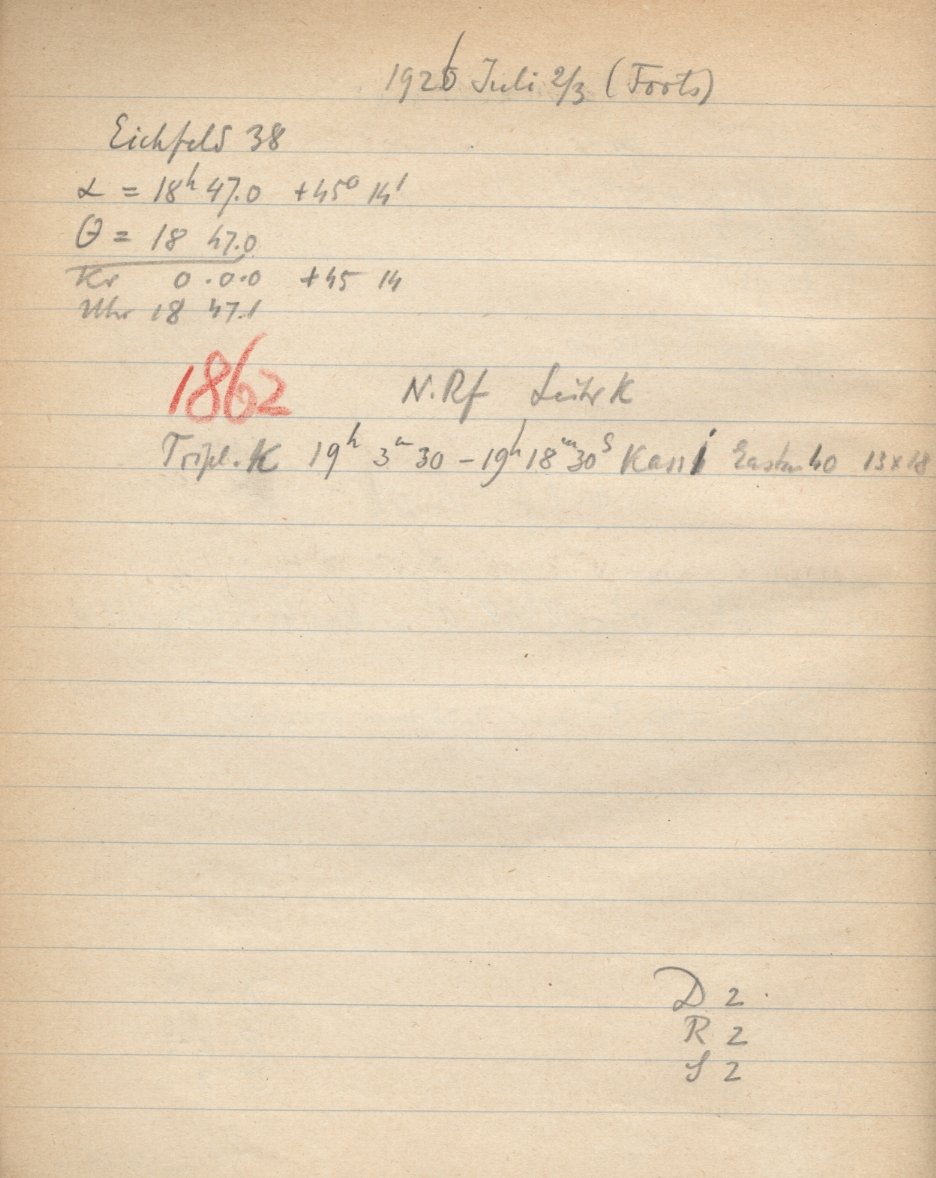 1926 Juli 2/3 (Forts)
Eichfeld 38
α = 18h 47.0 +45° 14'
Θ = 18 47.0
Kr 0.0.0 +45 14
Uhr 18 47.1
1862 N.Rf Leitr K
Tripl. K 19h 3m 30 – 19h 18m 30s Kass 1 Eastm 40 13x18
D 2
R 2
S 2